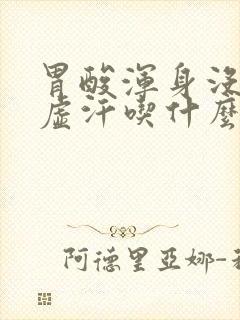 胃酸渾身沒
虛汗喫什麼
阿德里亞娜-